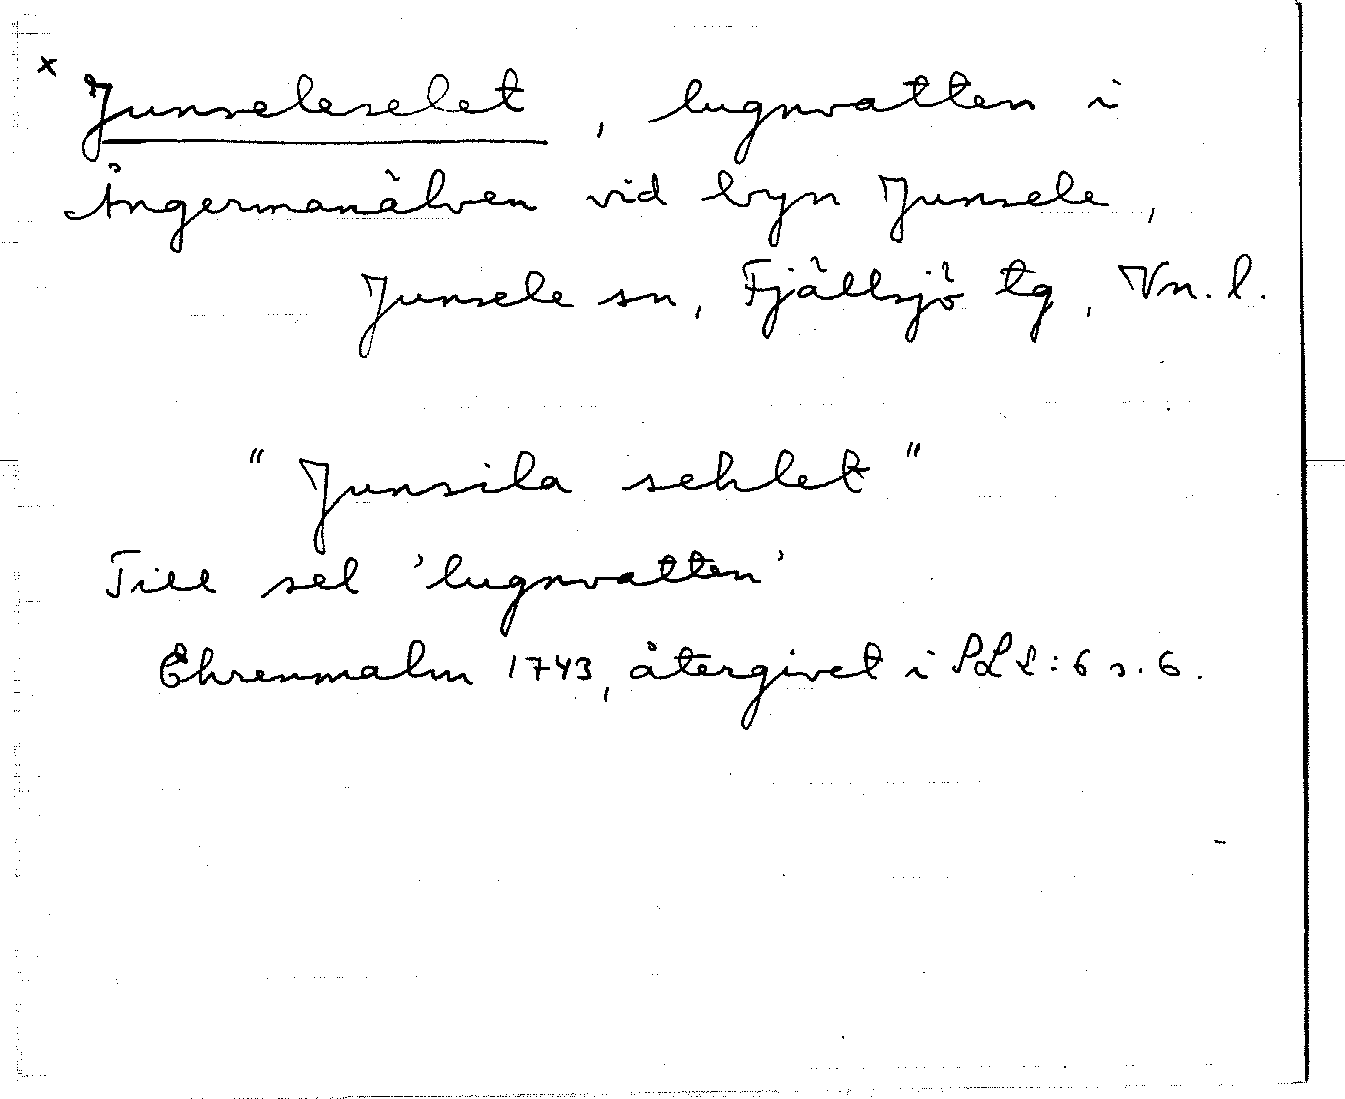 x Junseleselet, lugnvatten i
Ångermanälven vid byn Junsele,
Junsele sn, Fjällsjö tg, Vn. l.
"Junsila sehlet"
Till sel 'lugnvatten'
Ehrenmalm 1743, återgivet i PLL: 6 s. 6.